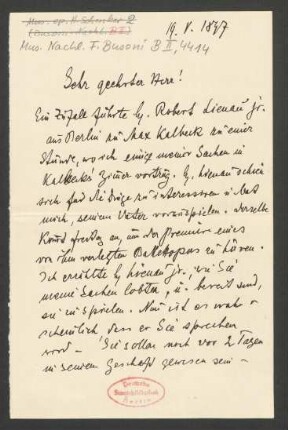 Mus. ep. A. Schenker 2
(Busoni-Nachl. B II)
19. V. 1897
Mus. Nachl. F. Busoni B II, 4414
Sehr geehrter Herr!
Ein Zufall führte H. Robert Lienau jr.
aus Berlin zu Max Kalbeck zu einer
Stunde, wo ich einige meiner Sachen in
Kalbecks' vortrug. H. Lienau schien
sich für die Dinge zu interessieren u. bat
mich, seinem Vater vorzuspielen. Derselbe
kommt Freitag an, um der Premiere eines
von ihm verlegten zu hören.
Ich erzählte H. Lienau jr., wie Sie
meine Sachen lobten, u. bereit sind,
sie zu spielen. Nun ist es wahr-
scheinlich dass er Sie sprechen
wird – Sie sollen noch vor 2 Tagen
in seinem Geschäft gewesen sein –
Deutsche
Staatsbibliothek
Berlin